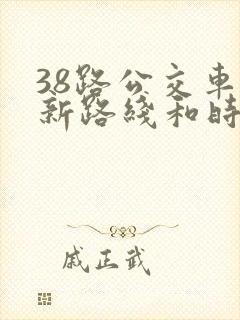 38路公交車
新路綫和時
戚正武